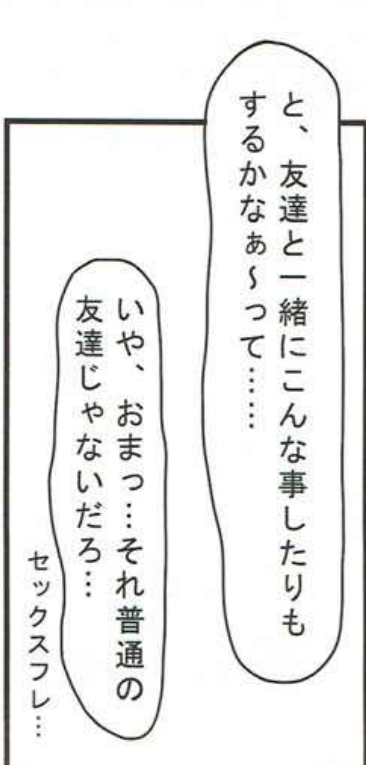 と、友達と一緒にこんな事したりも
するかなぁ～って……
いや、おまっ…それ普通の
友達じゃないだろ…
セックスフレ…